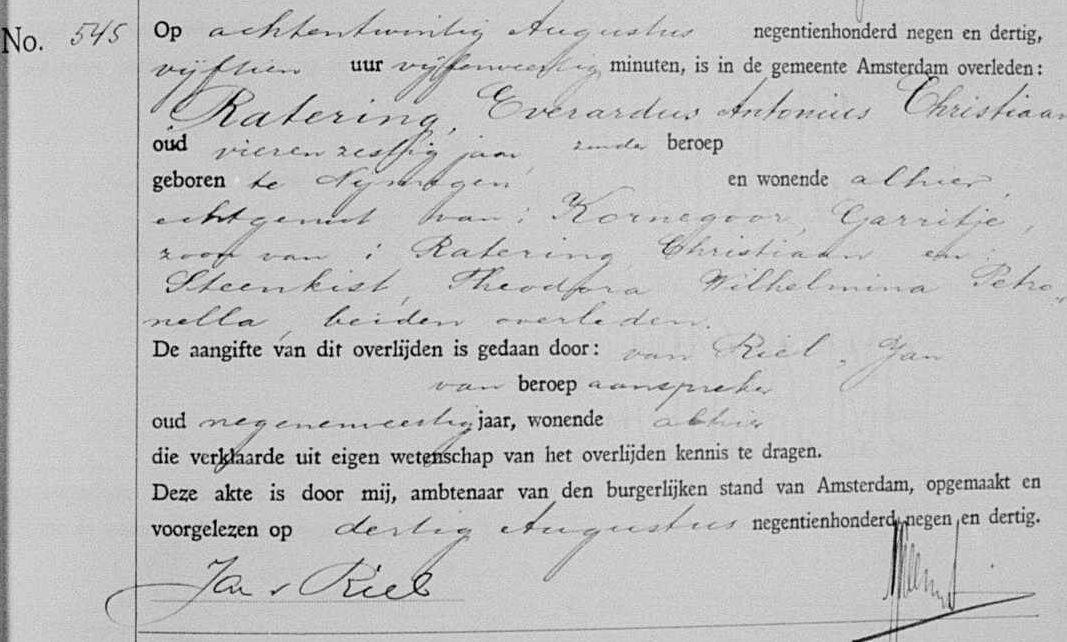 No. 545 Op achtentwintig Augustus negentienhonderd negen en dertig,
vijftien uur vijfenveertig minuten, is in de gemeente Amsterdam overleden:
Ratering, Everardus Antonius Christiaan
oud vierenzestig jaar, zonder beroep
geboren te Nijmegen, en wonende alhier,
echtgenoot van: Kornegoor, Garritje,
zoon van: Ratering, Christiaan en
Steenkist, Theodora Wilhelmina Petro-
nella, beiden overleden.
De aangifte van dit overlijden is gedaan door: van Riel, Jan
van beroep aanspreker
oud negenenveertig jaar, wonende alhier
die verklaarde uit eigen wetenschap van het overlijden kennis te dragen.
Deze akte is door mij, ambtenaar van den burgerlijken stand van Amsterdam, opgemaakt en
voorgelezen op dertig Augustus negentienhonderd negen en dertig.
Jan v Riel